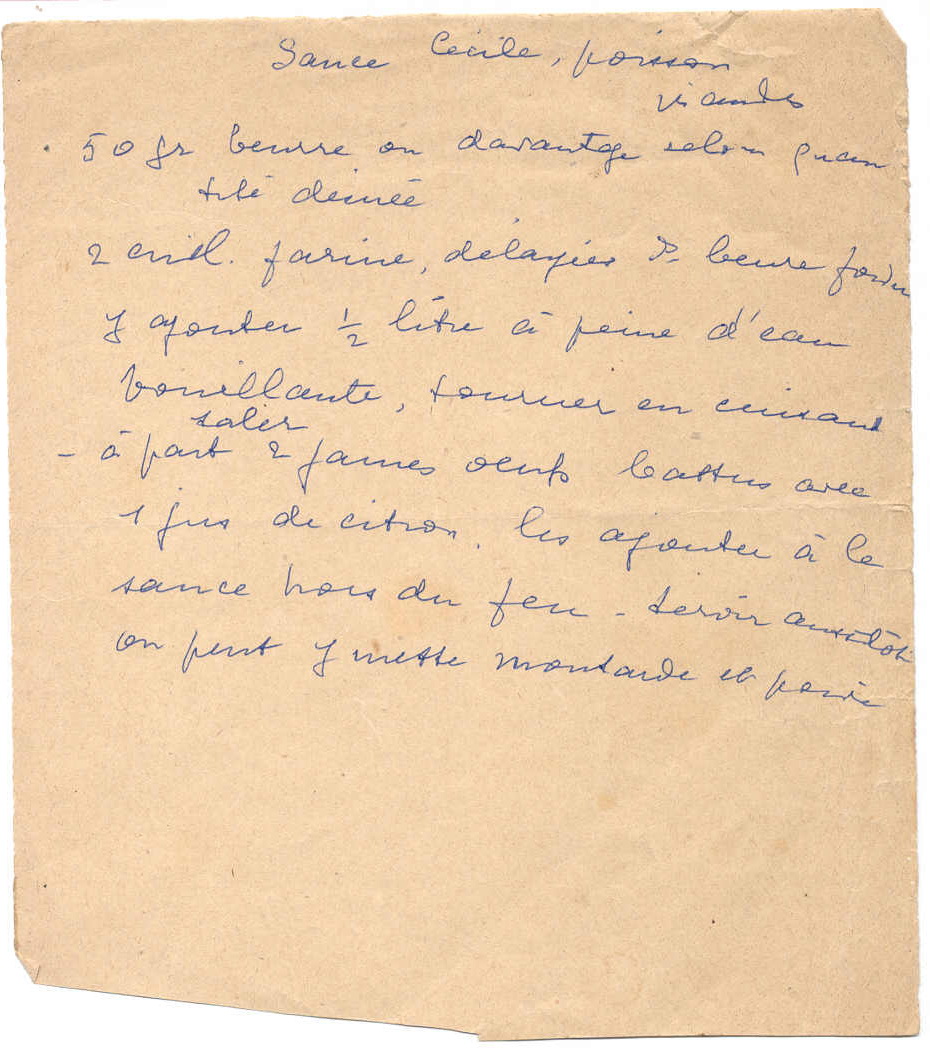 Sauce Cécile, poisson
viandes
50 gr beurre ou davantage selon quan
tité désirée
2 cuil. farine, délayées ds beurre fondu
y ajouter 1/2 litre à peine d'eau
bouillante, tourner en cuisant
saler
- à part 2 jaunes oeufs battus avec
1 jus de citron, les ajouter à la
sauce hors du feu - servir aussitôt
on peut y mettre moutarde et poivre